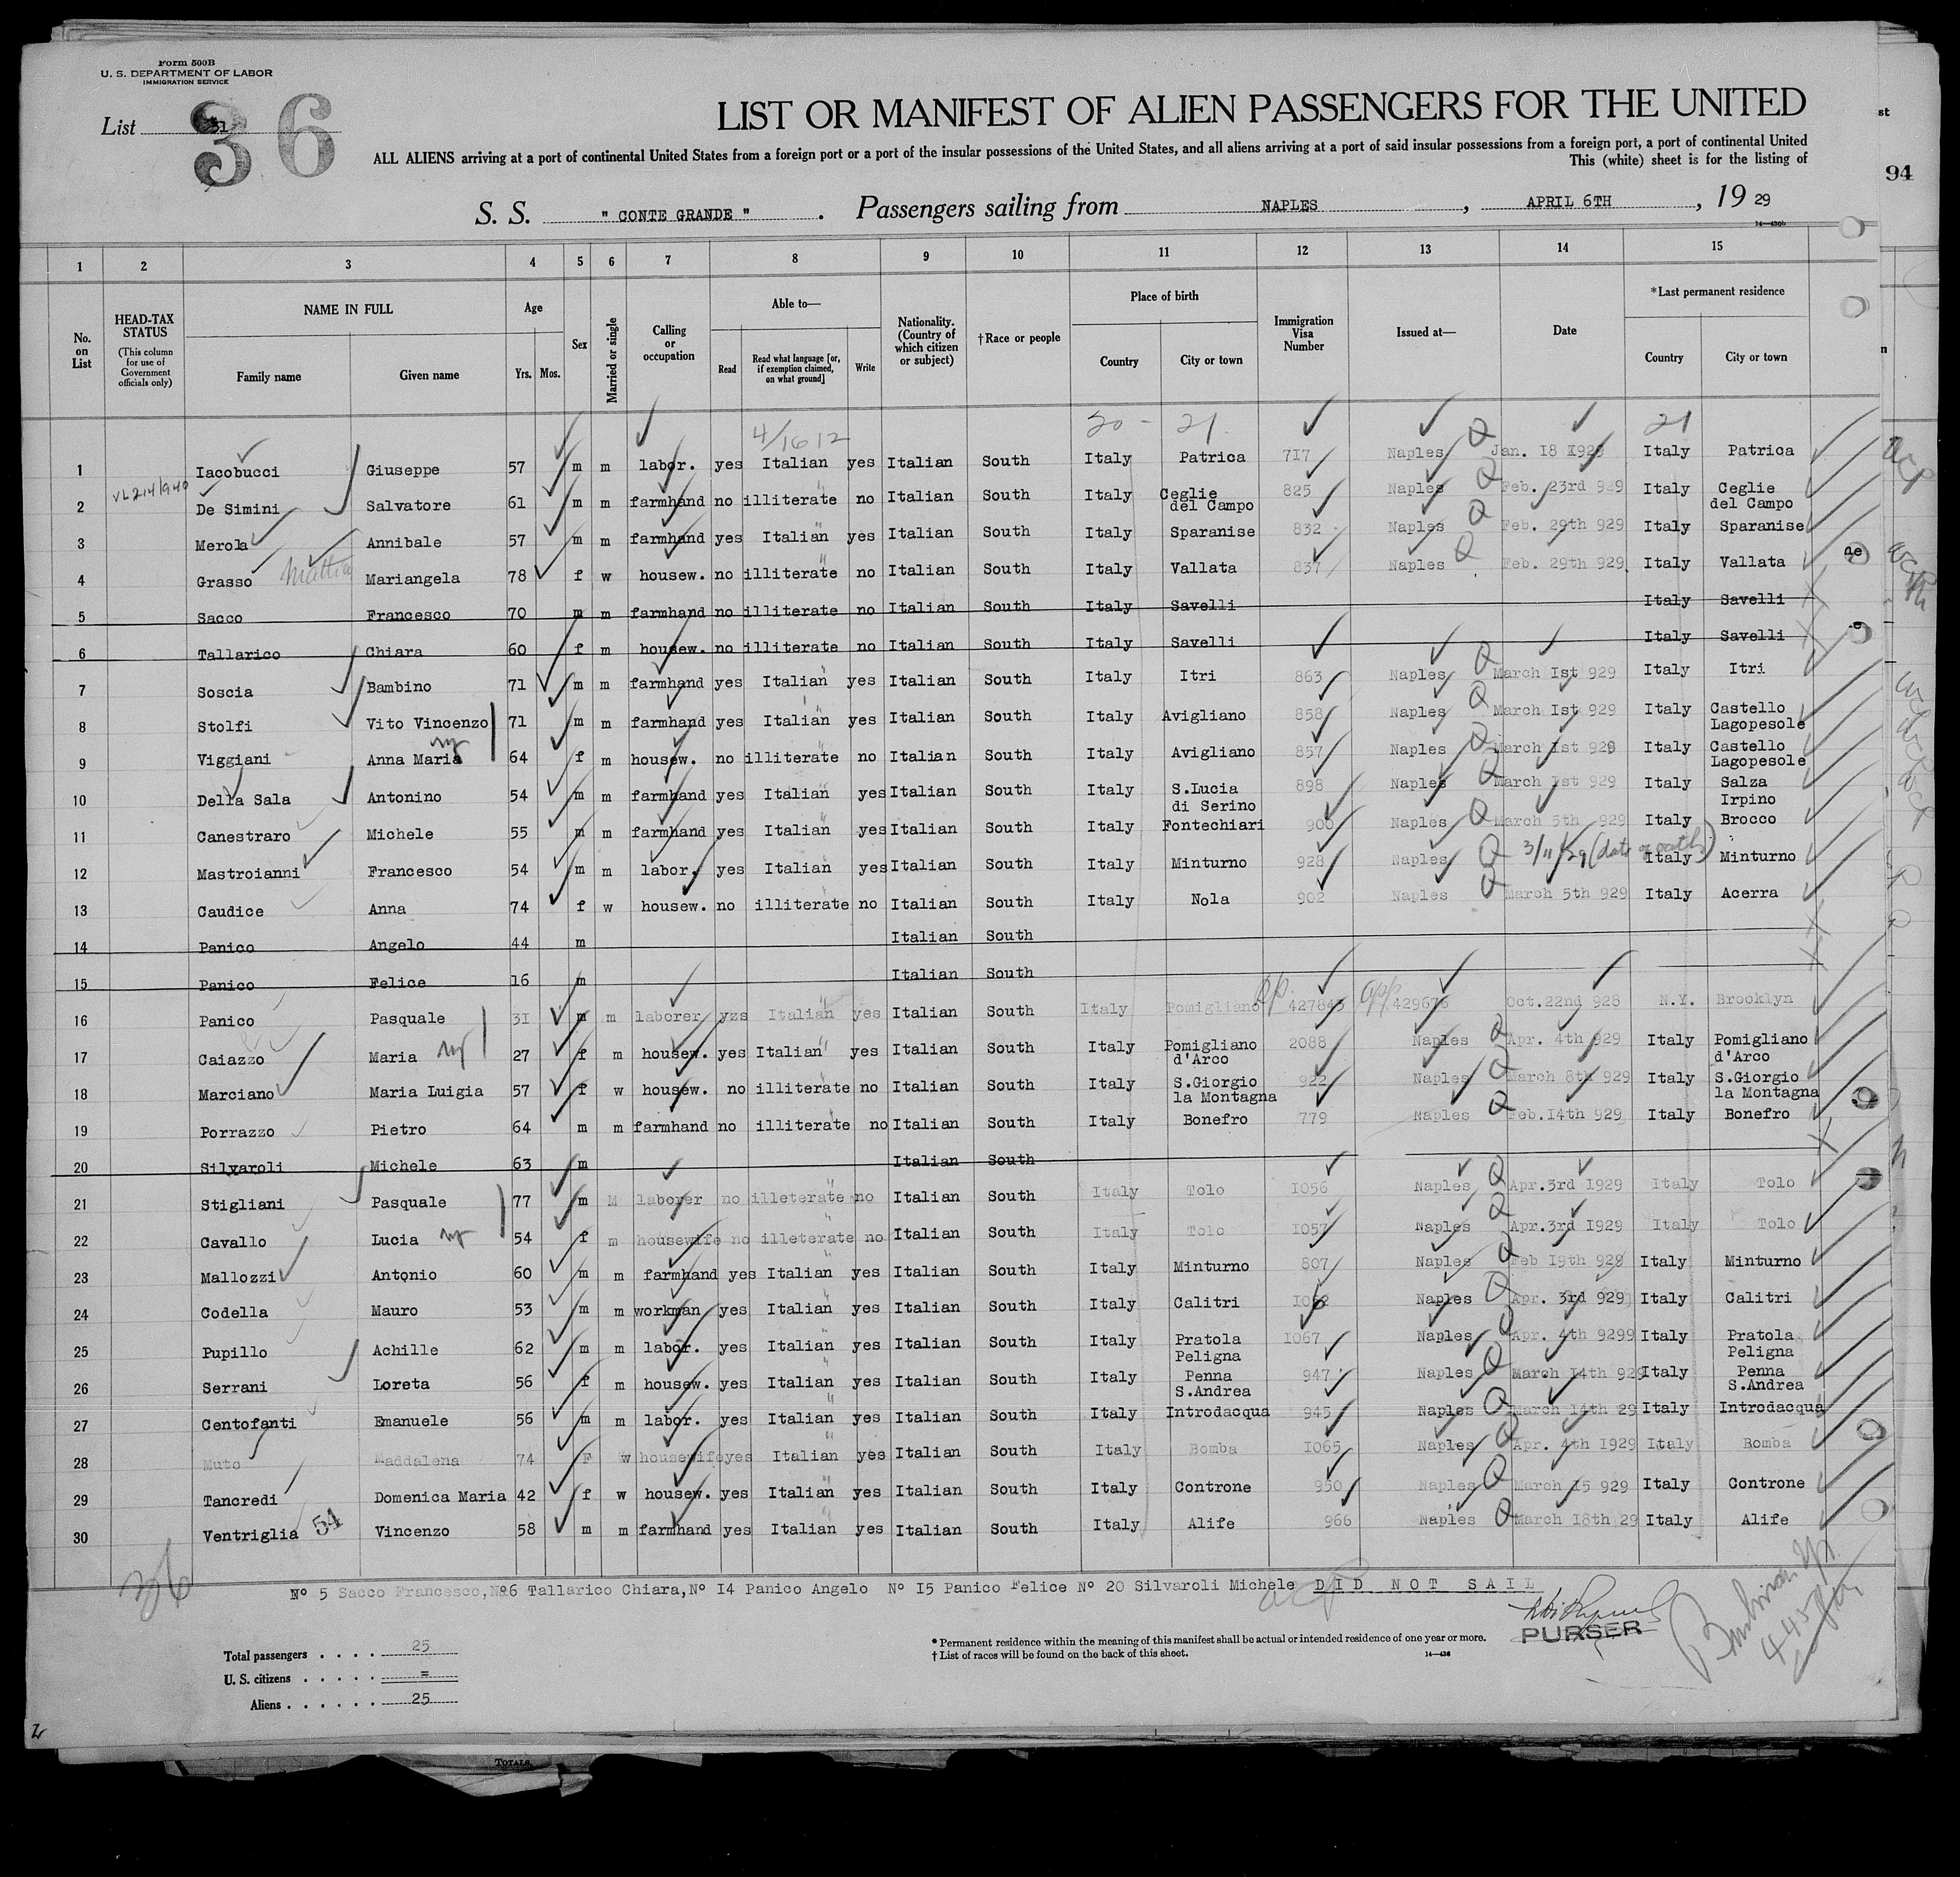 Form 500B
U. S. DEPARTMENT OF LABOR
IMMIGRATION SERVICE
List 31
36
LIST OR MANIFEST OF ALIEN PASSENGERS FOR THE UNITED
ALL ALIENS arriving at a port of continental United States from a foreign port or a port of the insular possessions of the United States, and all aliens arriving at a port of said insular possessions from a foreign port, a port of continental United
This (white) sheet is for the listing of
st
94
S. S. " CONTE GRANDE " . Passengers sailing from NAPLES , APRIL 6TH , 19 29
14—430b
1 2 3 4 5 6 7 8 9 10 11 12 13 14 15
No. on List
HEAD-TAX STATUS
(This column for use of Government officials only)
NAME IN FULL
Family name Given name
Age
Yrs. Mos.
Sex
Married or single
Calling or occupation
Able to—
Read Read what language [or, if exemption claimed, on what ground] Write
Nationality. (Country of which citizen or subject)
†Race or people
Place of birth
Country City or town
Immigration Visa Number
Issued at—
Date
*Last permanent residence
Country City or town
4/16 12 20 - 21. 21
1 Iacobucci Giuseppe 57 m m labor. yes Italian yes Italian South Italy Patrica 7I7 Naples Jan. I8 I929 Italy Patrica
2 De Simini Salvatore 61 m m farmhand no illiterate no Italian South Italy Ceglie del Campo 825 Naples Feb. 23rd 929 Italy Ceglie del Campo
3 Merola Annibale 57 m m farmhand yes Italian yes Italian South Italy Sparanise 832 Naples Feb. 29th 929 Italy Sparanise
4 Grasso Mattia Mariangela 78 f w housew. no illiterate no Italian South Italy Vallata 837 Naples Feb. 29th 929 Italy Vallata
5 Sacco Francesco 70 m m farmhand no illiterate no Italian South Italy Savelli Italy Savelli
6 Tallarico Chiara 60 f m housew. no illiterate no Italian South Italy Savelli Italy Savelli
7 Soscia Bambino 71 m m farmhand yes Italian yes Italian South Italy Itri 863 Naples March Ist 929 Italy Itri
8 Stolfi Vito Vincenzo 71 m m farmhand yes Italian yes Italian South Italy Avigliano 858 Naples March Ist 929 Italy Castello Lagopesole
9 Viggiani Anna Maria 64 f m housew. no illiterate no Italian South Italy Avigliano 857 Naples March 1st 929 Italy Castello Lagopesole
10 Della Sala Antonino 54 m m farmhand yes Italian yes Italian South Italy S.Lucia di Serino 898 Naples March 1st 929 Italy Salza Irpino
11 Canestraro Michele 55 m m farmhand yes Italian yes Italian South Italy Fontechiari 900 Naples March 5th 929 Italy Brocco
12 Mastroianni Francesco 54 m m labor. yes Italian yes Italian South Italy Minturno 928 Naples 3/11/29 (date of oath) Italy Minturno
13 Caudice Anna 74 f w housew. no illiterate no Italian South Italy Nola 902 Naples March 5th 929 Italy Acerra
14 Panico Angelo 44 m Italian South
15 Panico Felice 16 m Italian South
16 Panico Pasquale 3I m m laborer yzs Italian yes Italian South Italy Pomigliano 427843 429676 Oct.22nd 928 N.Y. Brooklyn
17 Caiazzo Maria 27 f m housew. yes Italian yes Italian South Italy Pomigliano d'Arco 2088 Naples Apr. 4th 929 Italy Pomigliano d'Arco
18 Marciano Maria Luigia 57 f w housew. no illiterate no Italian South Italy S.Giorgio la Montagna 922 Naples March 8th 929 Italy S.Giorgio la Montagna
19 Porrazzo Pietro 64 m m farmhand no illiterate no Italian South Italy Bonefro 779 Naples Feb.I4th 929 Italy Bonefro
20 Silvaroli Michele 63 m Italian South
21 Stigliani Pasquale 77 m M laborer no illeterate no Italian South Italy Tolo I056 Naples Apr.3rd I929 Italy Tolo
22 Cavallo Lucia 54 f m housewife no illeterate no Italian South Italy Tolo I057 Naples Apr.3rd I929 Italy Tolo
23 Mallozzi Antonio 60 m m farmhand yes Italian yes Italian South Italy Minturno 807 Naples Feb I9th 929 Italy Minturno
24 Codella Mauro 53 m m workman yes Italian yes Italian South Italy Calitri Naples Apr. 3rd 929 Italy Calitri
25 Pupillo Achille 62 m m labor. yes Italian yes Italian South Italy Pratola Peligna I067 Naples Apr. 4th 9299 Italy Pratola Peligna
26 Serrani Loreta 56 f m housew. yes Italian yes Italian South Italy Penna S.Andrea 947 Naples March I4th 929 Italy Penna S.Andrea
27 Centofanti Emanuele 56 m m labor. yes Italian yes Italian South Italy Introdacqua 945 Naples March I4th 29 Italy Introdacqua
28 Muto Maddalena 74 F w housewife yes Italian yes Italian South Italy Bomba I065 Naples Apr. 4th I929 Italy Bomba
29 Tancredi Domenica Maria 42 f w housew. yes Italian yes Italian South Italy Controne 950 Naples March I5 929 Italy Controne
30 Ventriglia 54 Vincenzo 58 m m farmhand yes Italian yes Italian South Italy Alife 966 Naples March I8th 29 Italy Alife
36
Nº 5 Sacco Francesco,Nº6 Tallarico Chiara,Nº I4 Panico Angelo Nº I5 Panico Felice Nº 20 Silvaroli Michele DID NOT SAIL
PURSER
Total passengers . . . . 25
U. S. citizens . . . . . =
Aliens . . . . . . 25
* Permanent residence within the meaning of this manifest shall be actual or intended residence of one year or more.
† List of races will be found on the back of this sheet.
14—430
TOTALS.